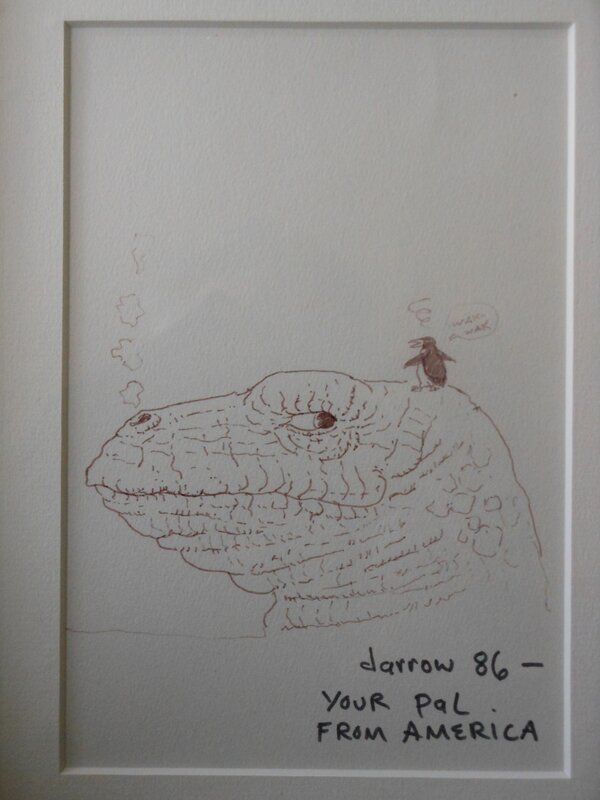 WAK
WAK
darrow 86 —
YOUR PaL .
FROM AMERICA